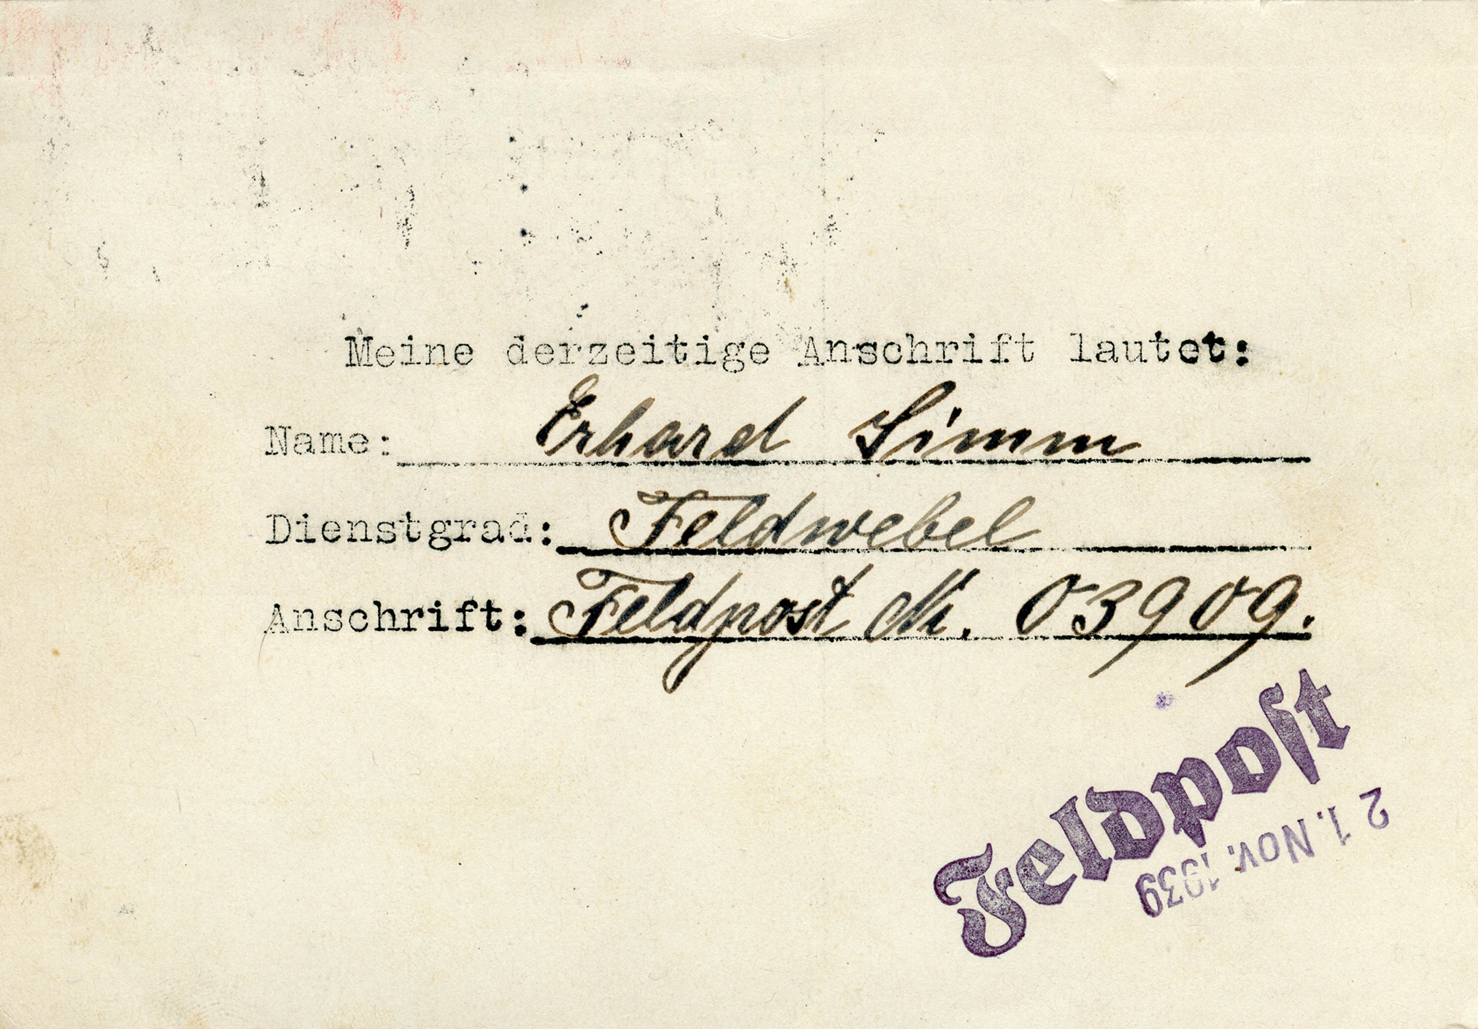 Meine derzeitige Anschrift lautet:
Name: Erhard Simm
Dienstgrad: Feldwebel
Anschrift: Feldpost Nr. 03909.
Feldpost
21. Nov. 1939